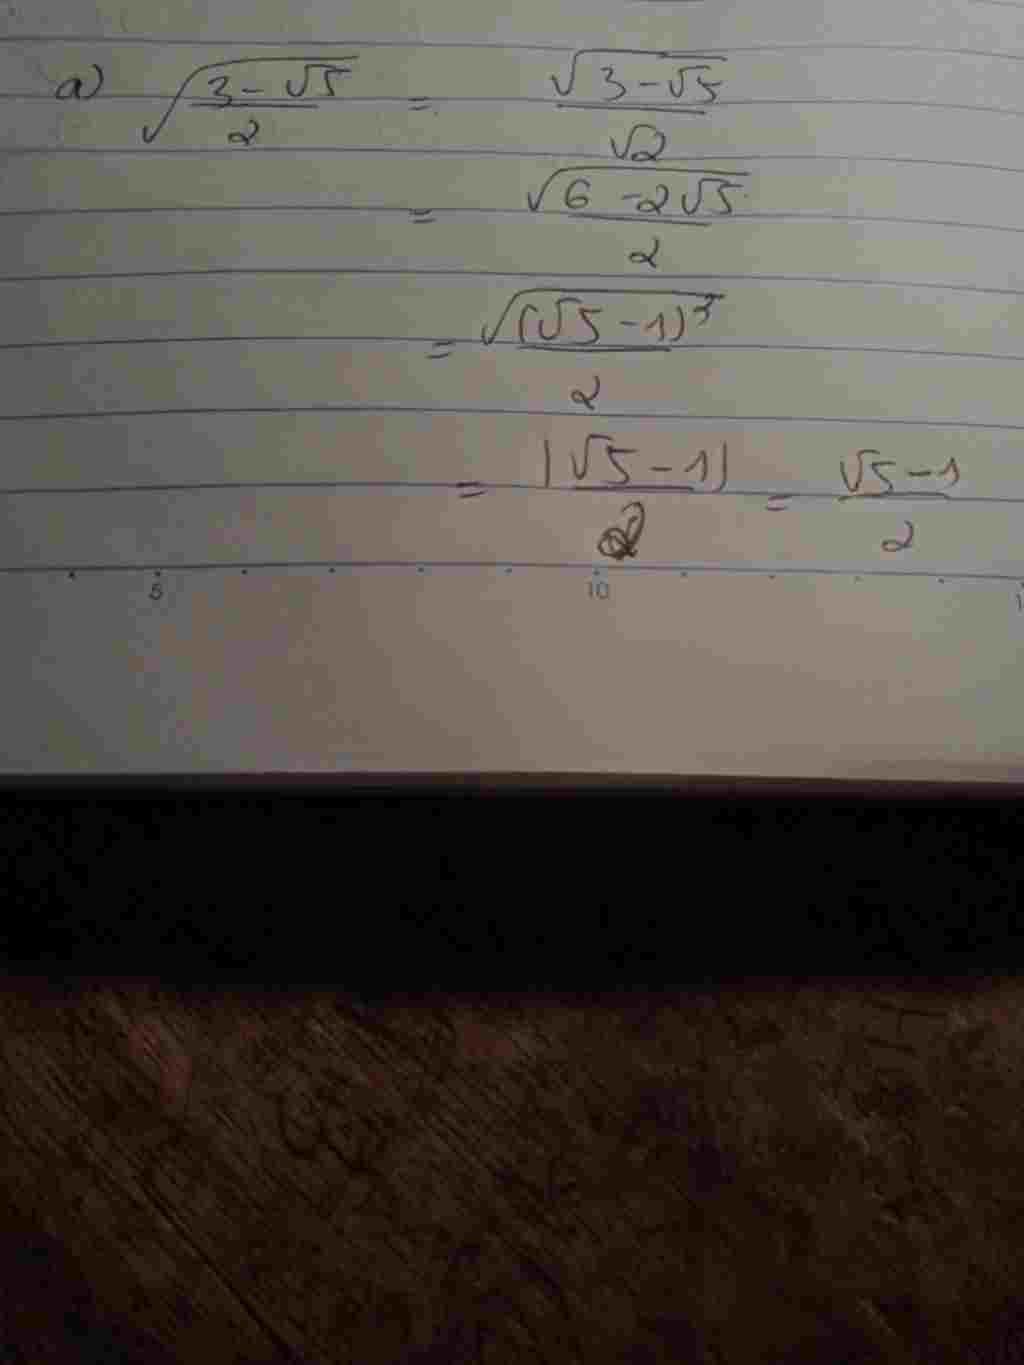 a) √((3-√5)/2) = √(3-√5)/√2
= √(6-2√5)/2
= √((√5-1)²)/2
= |√5-1|/2 = (√5-1)/2
5 10 1